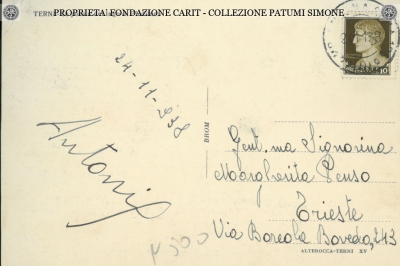 PROPRIETA' FONDAZIONE CARIT - COLLEZIONE PATUMI SIMONE
TERNI
24-11-938
Antonio
BROM
10
Gent.ma Signorina
Margherita Penso
Trieste
Via Boreola Boveda, 243
ALTEROCCA-TERNI XV
500